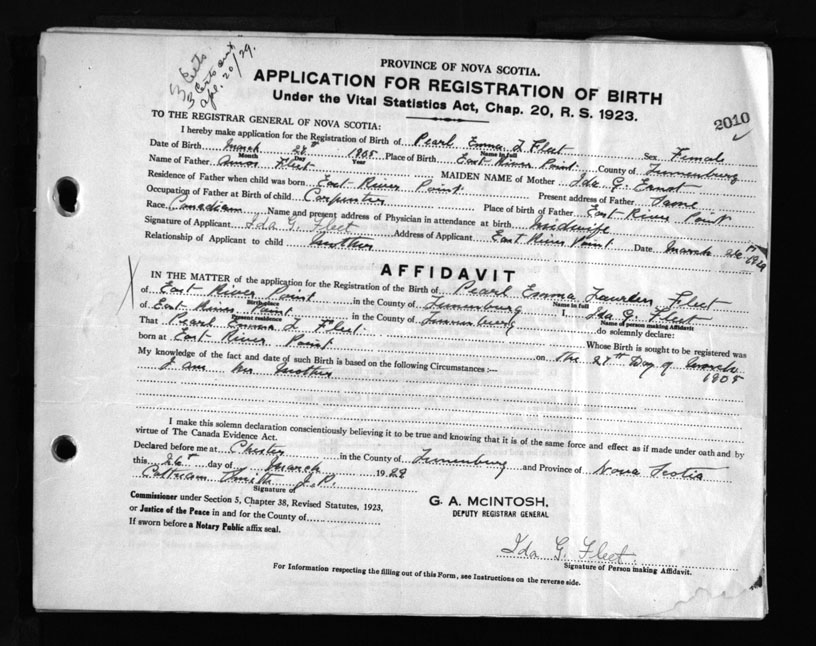 3 Certs
3 Certs out
Apl. 20/29.
PROVINCE OF NOVA SCOTIA.
APPLICATION FOR REGISTRATION OF BIRTH
Under the Vital Statistics Act, Chap. 20, R. S. 1923.
2010
TO THE REGISTRAR GENERAL OF NOVA SCOTIA:
I hereby make application for the Registration of Birth of Pearl Emma L Fleet Sex Female
Name in full
Date of Birth March 28th 1905 Place of Birth East River Point. County of Lunenburg
Month Day Year
Name of Father Amos Fleet MAIDEN NAME of Mother Ida G. Ernst
Residence of Father when child was born East River Point. Present address of Father Same
Occupation of Father at Birth of child Carpenter Place of birth of Father East River Point
Race Canadian Name and present address of Physician in attendance at birth Midwife
Signature of Applicant Ida G. Fleet Address of Applicant East River Point. Date March 26th 1929
Relationship of Applicant to child Mother
AFFIDAVIT
IN THE MATTER of the application for the Registration of the Birth of Pearl Emma Fleet
Name in full
of East River Point in the County of Lunenburg I, Ida G. Fleet
Birthplace Name of person making Affidavit
of East River Point in the County of Lunenburg do solemnly declare:
Present residence
That Pearl Emma L Fleet. Whose Birth is sought to be registered was
born at East River Point on the Day of March 1905
My knowledge of the fact and date of such Birth is based on the following Circumstances :—
I am her Mother
I make this solemn declaration conscientiously believing it to be true and knowing that it is of the same force and effect as if made under oath and by
virtue of The Canada Evidence Act.
Declared before me at Chester in the County of Lunenburg and Province of Nova Scotia
this 26th day of March 1929
Smith J.P.
Signature of
Commissioner under Section 5, Chapter 38, Revised Statutes, 1923,
or Justice of the Peace in and for the County of
If sworn before a Notary Public affix seal.
G. A. McINTOSH,
DEPUTY REGISTRAR GENERAL
Ida G. Fleet
Signature of Person making Affidavit.
For Information respecting the filling out of this Form, see Instructions on the reverse side.